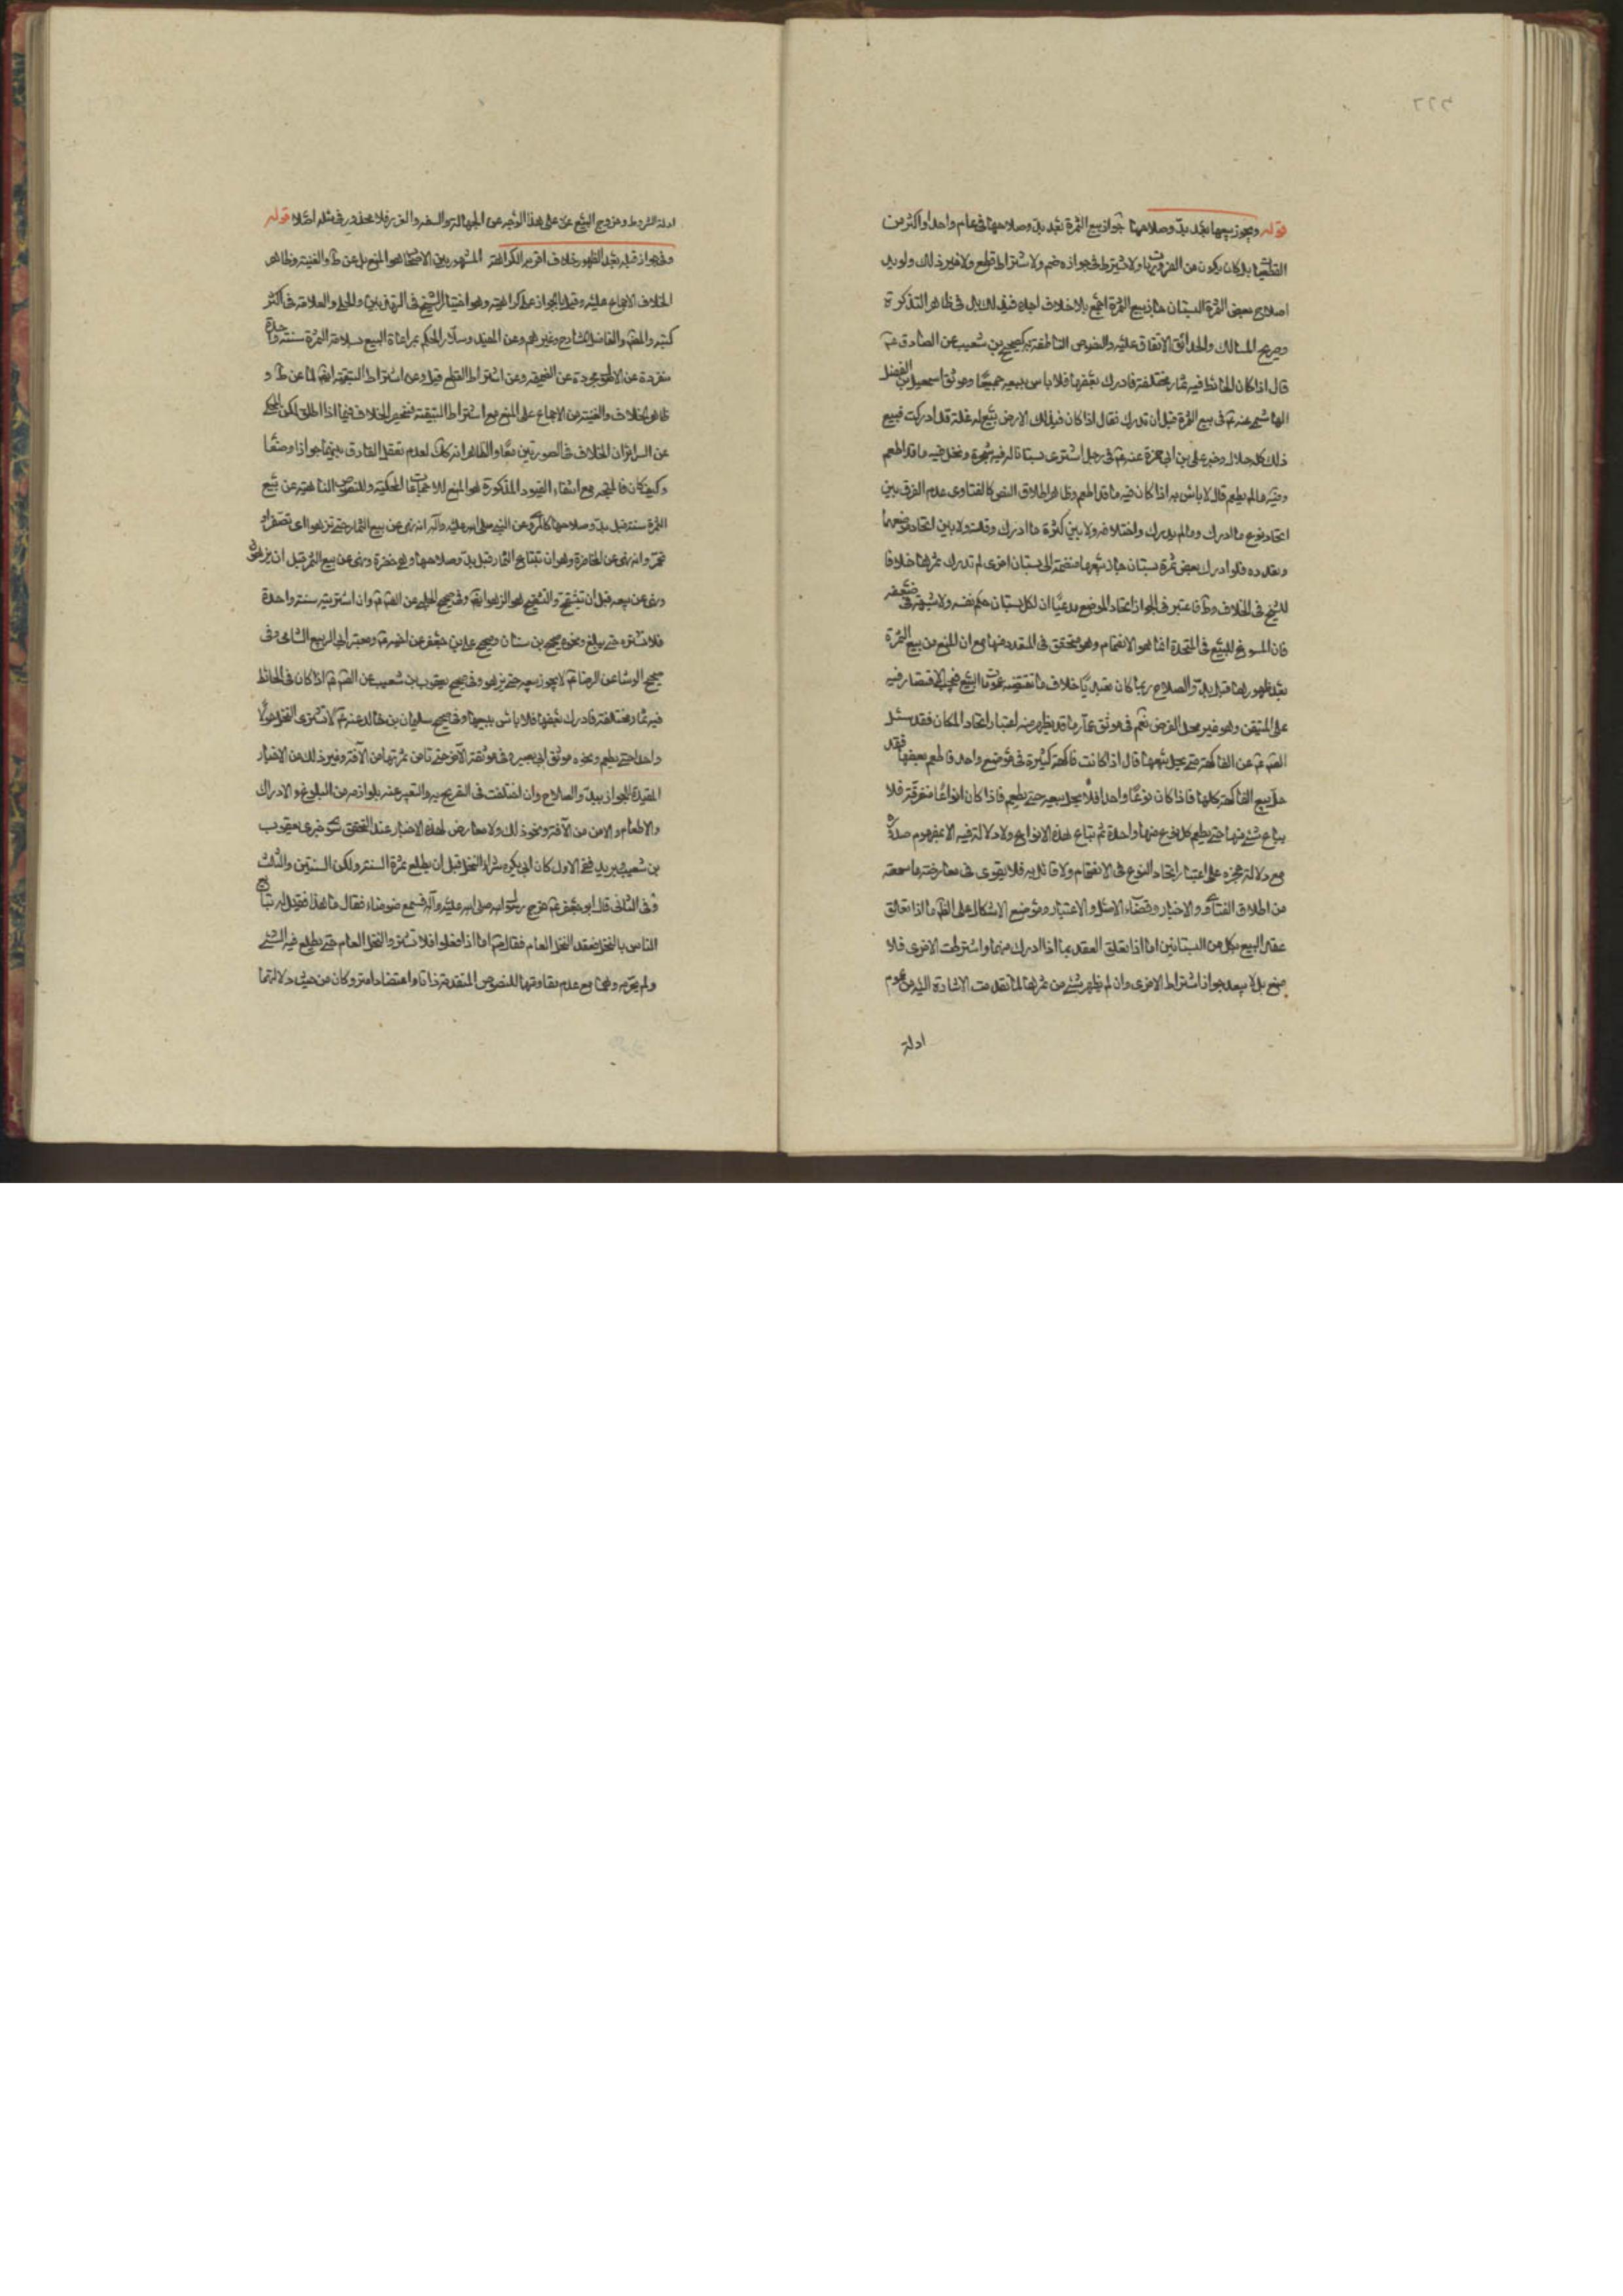 قوله ويجوز بيعها بعد بدو صلاحها جواز بيع الثمرة بعد بدو صلاحها في عام واحد او اكثر من
القطعيات بل كاد يكون من الضروريات ولا يشترط في جوازه ضم ولا اشتراط قطع ولا غير ذلك ولو بدا
صلاح بعض الثمرة البستان جاز بيع الثمرة اجمع بلا خلاف اجده في ذلك بل في ظاهر التذكرة
وصريح المسالك والحدائق الاتفاق عليه والنصوص الناطقة به كصحيح بن شعيب عن الصادق عم
قال اذا كان الحائط فيه ثمار مختلفة فادرك بعضها فلا باس ببيعه جميعا وموثق اسمعيل بن الفضل
الهاشمي عنه عم في بيع الثمرة قبل ان تدرك فقال اذا كان في تلك الارض بيع له غلة قد ادركت فبيع
ذلك كله حلال وخبر علي بن ابي حمزة عنه عم في رجل اشترى بستانا له فيه شجرة ونخل فيه ما قد اطعم
وفيه ما لم يطعم قال لا باس به اذا كان فيه ما قد اطعم وظاهر اطلاق النص كالفتاوى عدم الفرق بين
اتحاد نوع ما ادرك وما لم يدرك واختلافه ولا بين كثرة ما ادرك وقلته ولا بين اتحاد موضعهما
وتعدده فلو ادرك بعض ثمرة بستان جاز بيعها منضمة الى بستان اخرى لم تدرك ثمرتها خلافا
للشيخ في الخلاف وط فاعتبر في الجواز اتحاد الموضع مدعيا ان لكل بستان حكم نفسه ولا شبهة في ضعفه
فان المسوغ للبيع في المتحدة انما هو الانضمام وهو متحقق في المتعدد منها مع ان المنع من بيع الثمرة
بعد ظهورها قبل بدو الصلاح ربما كان تعبديا خلاف ما تقتضيه عمومات البيع فيجب الاقتصار فيه
على المتيقن وهو غير محل الفرض نعم في موثق عمار ما قد يظهر منه اعتبار اتحاد المكان فقد سئل
الصم عم عن الفاكهة متى يحل بيعها قال اذا كانت فاكهة كثيرة في موضع واحد فاطعم بعضها فقد
حل بيع الفاكهة كلها فاذا كان نوعا واحدا فلا يحل بيعه حتى يطعم فاذا كان انواعا متفرقة فلا
يباع شئ منها حتى يطعم كل نوع منها واحدة ثم تباع هذه الانواع ولا دلالة فيه الا بمفهوم صدره
مع دلالة عجزه على اعتبار اتحاد النوع في الانضمام ولا قائل به فلا يقوى في معارضته ما سمعته
من اطلاق الفتاوى والاخبار وقضاء الاصل والاعتبار وموضع الاشكال على الظم ما اذا تعلق
عقد البيع بكل من البستانين اما اذا تعلق العقد بما اذا ادرك منهما واشترطت الاخرى فلا
منع بل لا يبعد جواز اشتراط الاخرى وان لم يظهر شئ من ثمرتها لما تقدمت الاشارة اليه من عموم
ادلة
ادلة الشروط وخروج البيع عن على هذا الوجه عن الجهالة والسفه والغرر فلا محذور في مثله اصلا قوله
وفي جواز قبله بعد الظهور خلاف اقربه الكراهة المشهور بين الاصحاب هو المنع بل عن ط والغنية وظاهر
الخلاف الاجماع عليه وقيل بالجواز على كراهية وهو اختيار الشيخ في التهذيبين والحلي والعلامة في اكثر
كتبه والمص والفاضل الشارح وغيرهم وعن المفيد وسلار الحكم بمراعاة البيع سلامة الثمرة سنة واحدة
منفردة عن الاصل مجردة عن الضميمة وعن اشتراط القطع قيل وعن اشتراط التبقية ايضا لما عن ط و
ظاهر الخلاف والغنية من الاجماع على المنع مع اشتراط التبقية فيختص الخلاف فيما اذا اطلق لكن المحكي
عن السرائر ان الخلاف في الصورتين معا والظاهر انه كك لعدم تعقل الفارق بينهما جوازا ومنعا
وكيف كان فالمتجه مع انتفاء القيود المذكورة هو المنع للاجماعات المحكية وللنصوص الناهية عن بيع
الثمرة سنة قبل بدو صلاحها كالمروي عن النبي صلى الله عليه وآله انه نهى عن بيع الثمار حتى تزهو اي تصفر او
تحمر وانه نهى عن المخاضرة وهو ان تبتاع الثمار قبل بدو صلاحها وهي خضرة ونهى عن بيع الثمر قبل ان يزهو
ونهى عن بيعه قبل ان تشقح والتشقيح هو الزهو ايضا وفي صحيح الحلبي عن الصم عم وان اشتريته سنة واحدة
فلا تشتره حتى يبلغ ونحوه صحيح بن سنان وصحيح علي بن جعفر عن اخيه عم ومعتبر ابي الربيع الشامي وفي
صحيح الوشا عن الرضا عم لا يجوز بيعه حتى يزهو وفي صحيح يعقوب بن شعيب عن الصم عم اذا كان في الحائط
فيه ثمار مختلفة فادرك بعضها فلا باس ببيعها وفي صحيح سليمان بن خالد عنه عم لا تشتري النخل حولا
واحدا حتى يطعم ونحوه موثق ابي بصير وفي موثقه الآخر حتى تامن ثمرتها من الآفة وغير ذلك من الاخبار
المقيدة للجواز ببدو الصلاح وان اختلفت في التصريح به والتعبير عنه بلوازمه من البلوغ والادراك
والاطعام والامن من الآفة ونحو ذلك ولا معارض لهذه الاخبار عند التحقيق سوى خبري يعقوب
بن شعيب وبريد ففي الاول كان ابي يكره شراء النخل قبل ان يطلع ثمرة السنة ولكن السنتين والثلث
وفي الثاني قال ابو جعفر عم خرج رسول الله صلى الله عليه وآله فسمع ضوضاء فقال ما هذا فقيل له تبايع
الناس بالنخل فقعد النخل العام فقال عم اما اذا فعلوا فلا تشتروا النخل العام حتى يطلع فيه الشئ
ولم يحرمه وهما مع عدم مقاومتهما للنصوص المتقدمة ذاتا واعتضادا متروكان من حيث دلالتهما